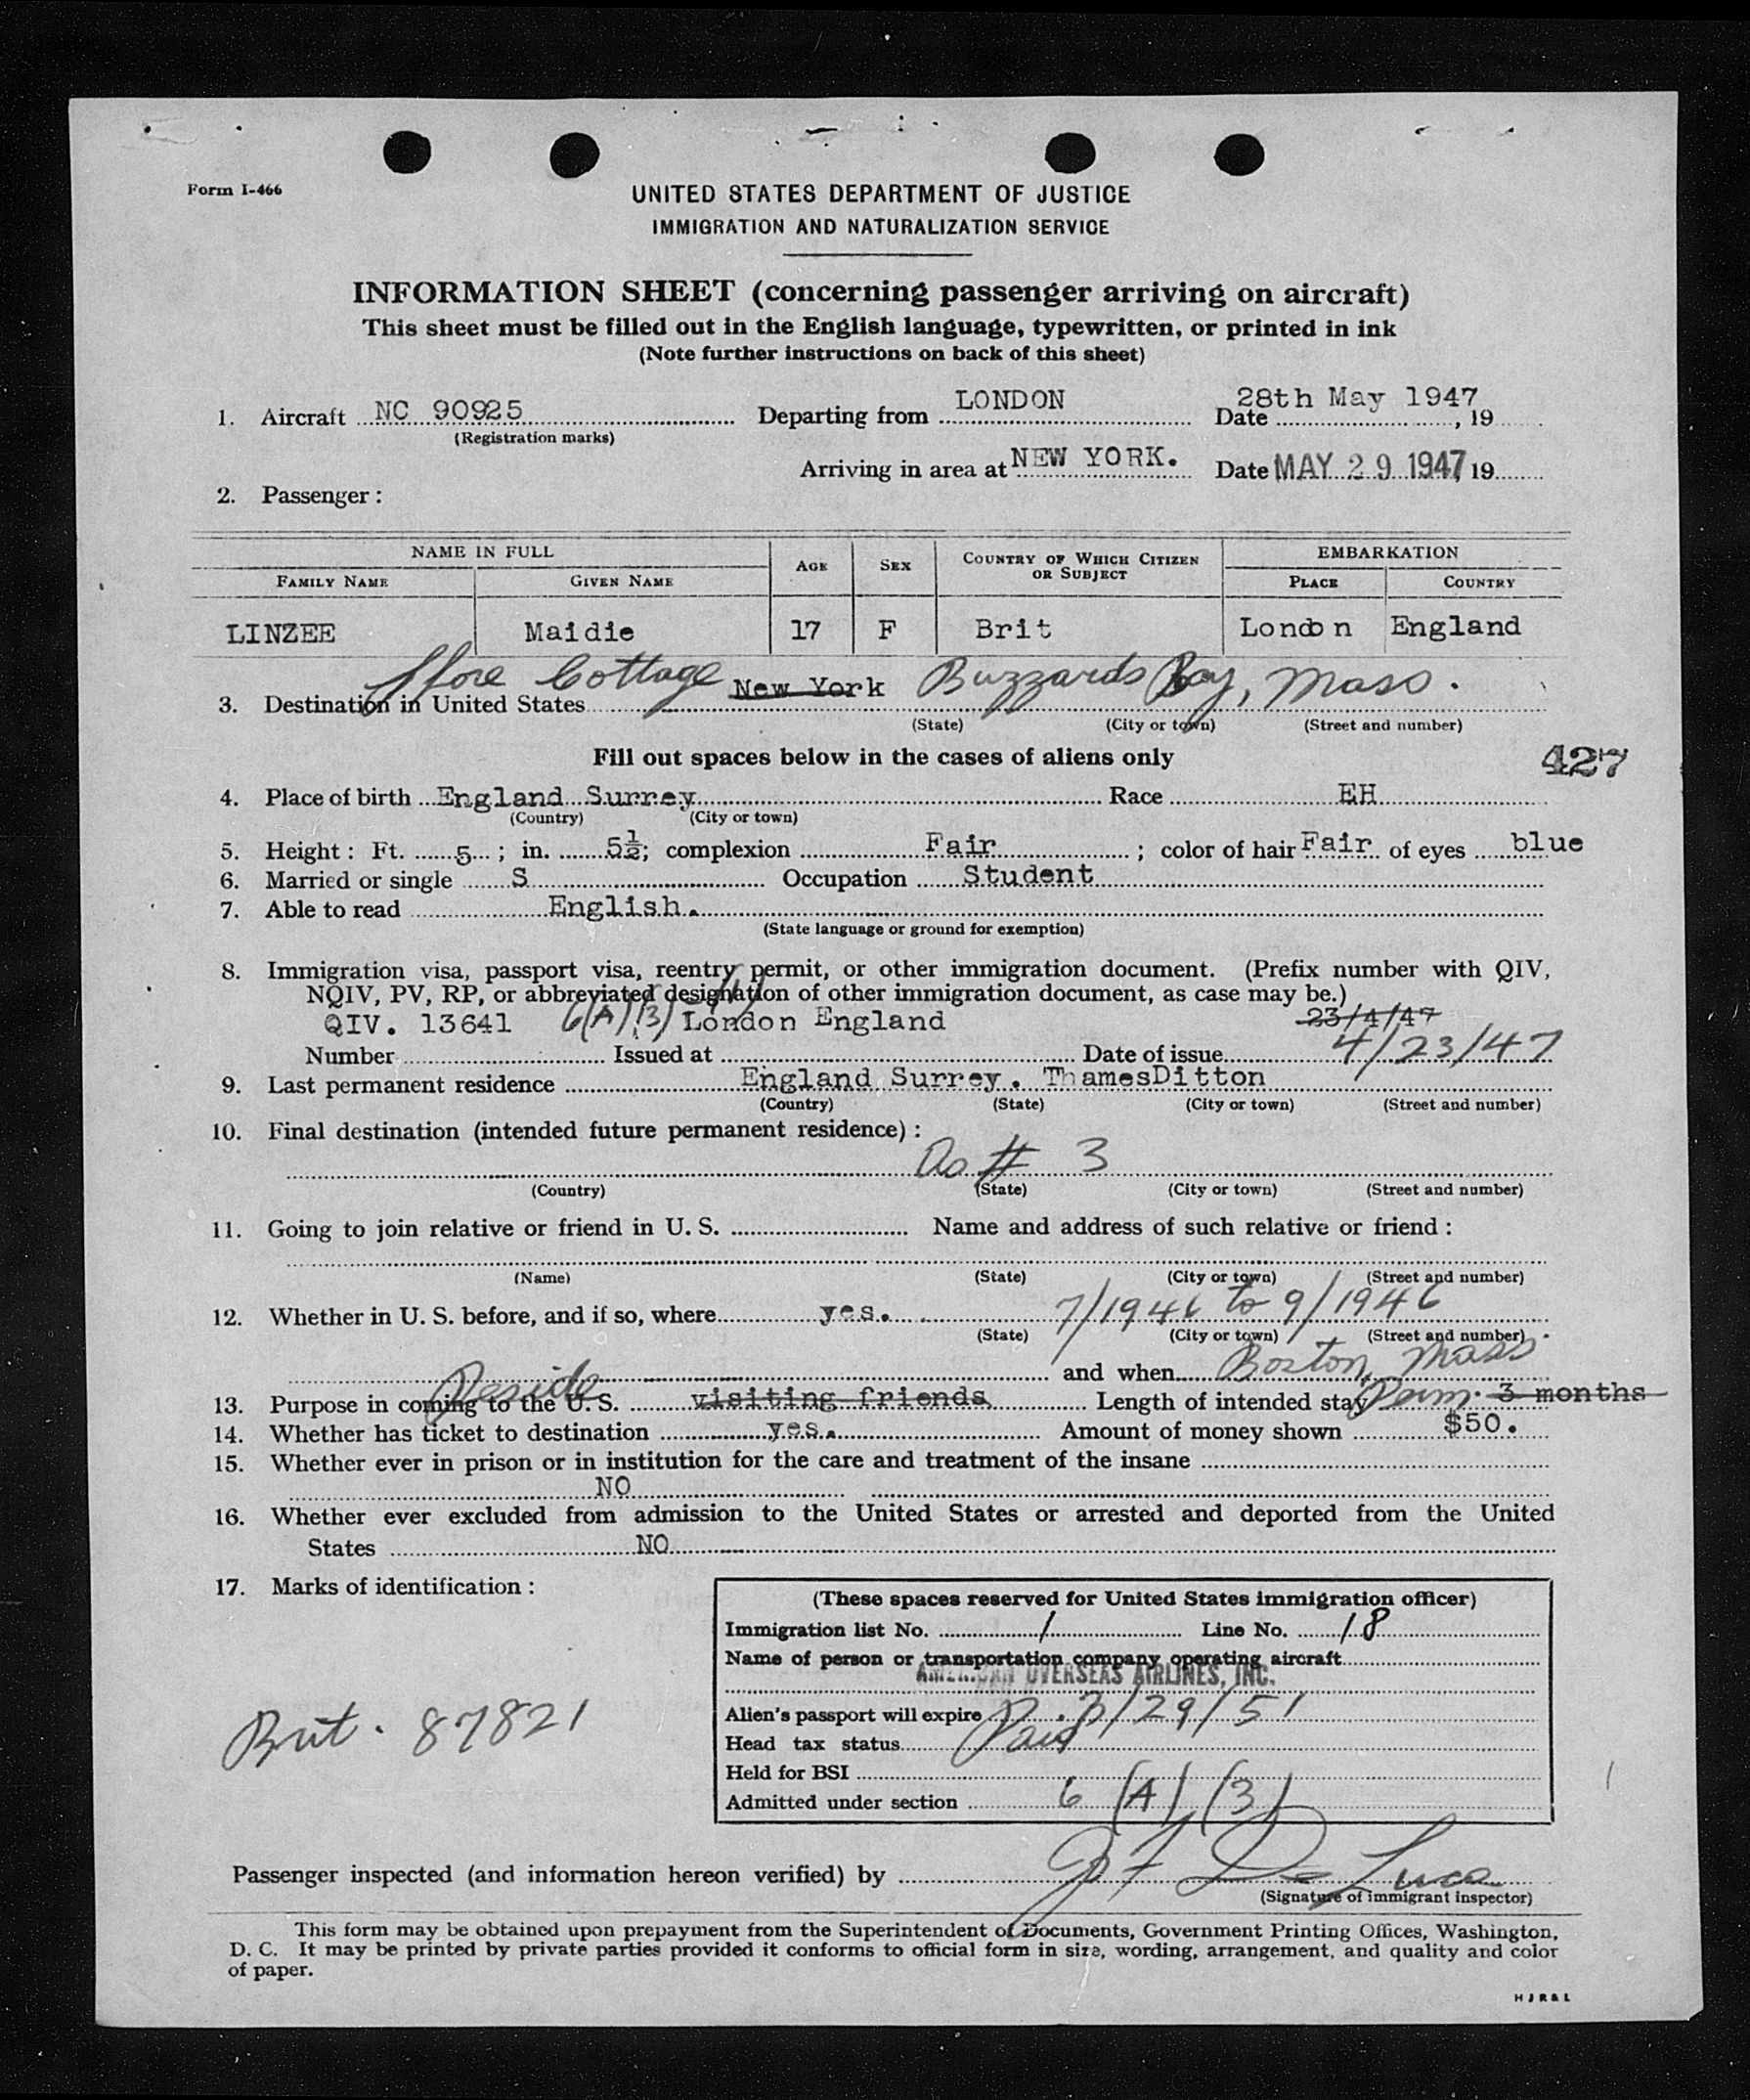 Form I-466
UNITED STATES DEPARTMENT OF JUSTICE
IMMIGRATION AND NATURALIZATION SERVICE
INFORMATION SHEET (concerning passenger arriving on aircraft)
This sheet must be filled out in the English language, typewritten, or printed in ink
(Note further instructions on back of this sheet)
1. Aircraft NC 90925 Departing from LONDON Date 28th May 1947, 19
(Registration marks)
Arriving in area at NEW YORK. Date MAY 29 1947, 19
2. Passenger:
NAME IN FULL AGE SEX COUNTRY OF WHICH CITIZEN OR SUBJECT EMBARKATION
FAMILY NAME GIVEN NAME PLACE COUNTRY
LINZEE Maidie 17 F Brit London England
3. Destination in United States Cottage New York Buzzards Bay, Mass.
(State) (City or town) (Street and number)
Fill out spaces below in the cases of aliens only
427
4. Place of birth England Surrey Race EH
(Country) (City or town)
5. Height: Ft. 5; in. 5½; complexion Fair; color of hair Fair of eyes blue
6. Married or single S Occupation Student
7. Able to read English.
(State language or ground for exemption)
8. Immigration visa, passport visa, reentry permit, or other immigration document. (Prefix number with QIV,
NQIV, PV, RP, or abbreviated designation of other immigration document, as case may be.)
QIV. 13641 6(A)(3) London England 23/4/47
Number Issued at Date of issue 4/23/47
9. Last permanent residence England Surrey. ThamesDitton
(Country) (State) (City or town) (Street and number)
10. Final destination (intended future permanent residence):
As # 3
(Country) (State) (City or town) (Street and number)
11. Going to join relative or friend in U. S. Name and address of such relative or friend:
(Name) (State) (City or town) (Street and number)
12. Whether in U. S. before, and if so, where yes. 7/1946 to 9/1946
(State) (City or town) (Street and number)
and when Boston, Mass
13. Purpose in coming to the U. S. Reside visiting friends Length of intended stay Perm. 3 months
14. Whether has ticket to destination yes. Amount of money shown $50.
15. Whether ever in prison or in institution for the care and treatment of the insane
NO
16. Whether ever excluded from admission to the United States or arrested and deported from the United
States NO
17. Marks of identification:
(These spaces reserved for United States immigration officer)
Immigration list No. 1 Line No. 18
Name of person or transportation company operating aircraft
AMERICAN OVERSEAS AIRLINES, INC.
Alien's passport will expire 3/29/51
Head tax status Paid
Held for BSI
Admitted under section 6 (A) (3)
Brit. 87821
Passenger inspected (and information hereon verified) by J F De Luca
(Signature of immigrant inspector)
This form may be obtained upon prepayment from the Superintendent of Documents, Government Printing Offices, Washington,
D. C. It may be printed by private parties provided it conforms to official form in size, wording, arrangement, and quality and color
of paper.
HJR&L